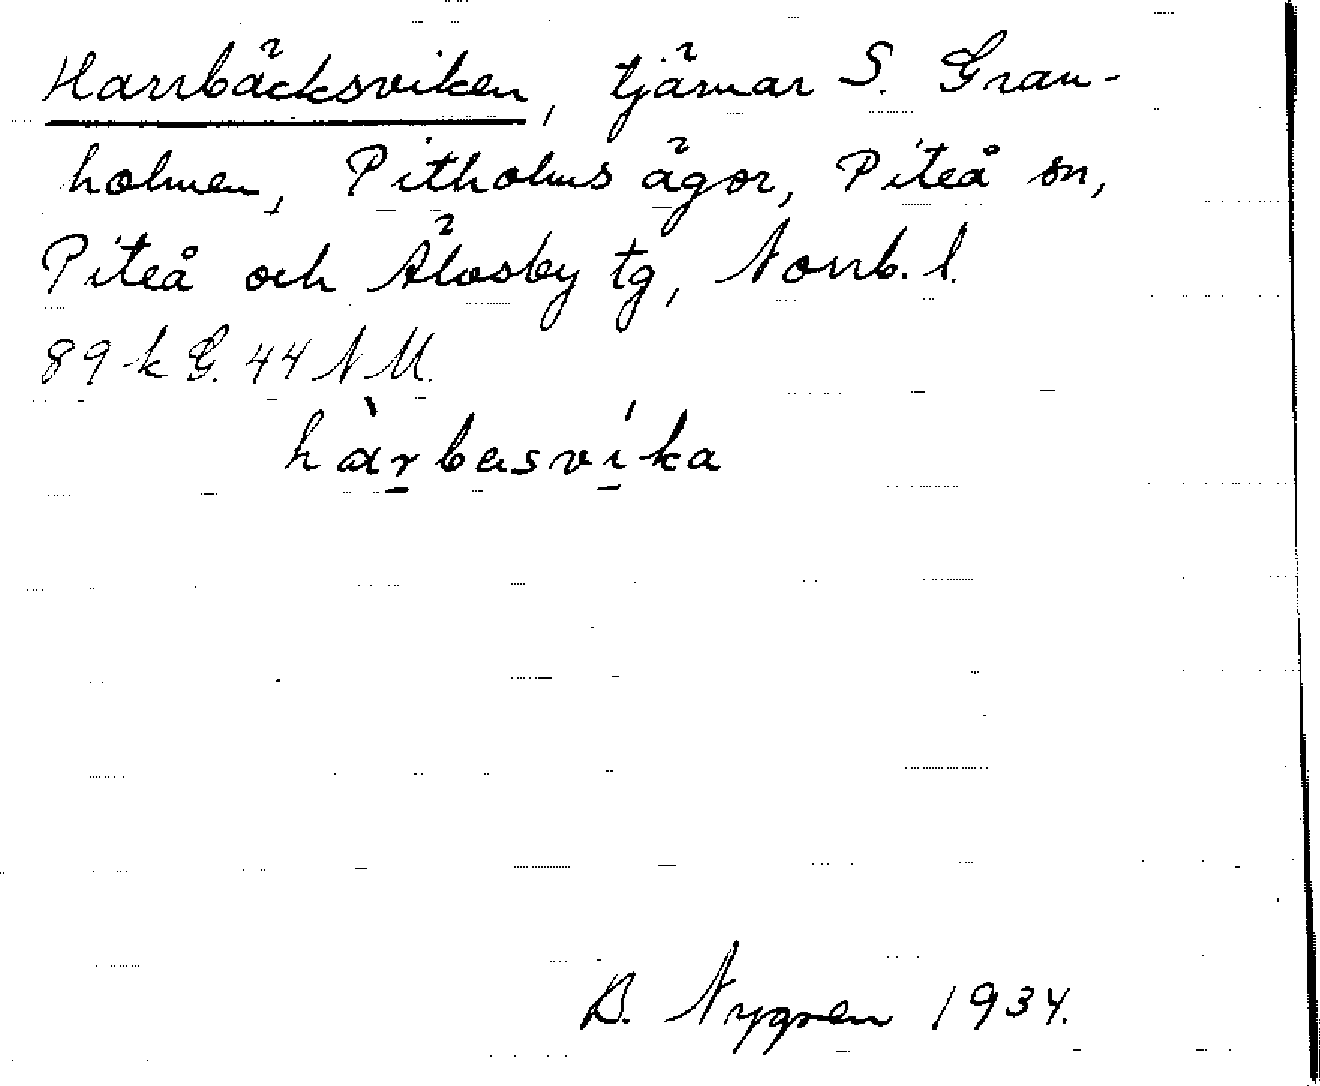 Harrbäcksviken, tjärnar S. Gran-
holmen, Pitholms ägor, Piteå sn,
Piteå och Älvsby tg, Norrb. l.
89 k G. 44 N M.
hàrbasvíka
B. Nygren 1934.